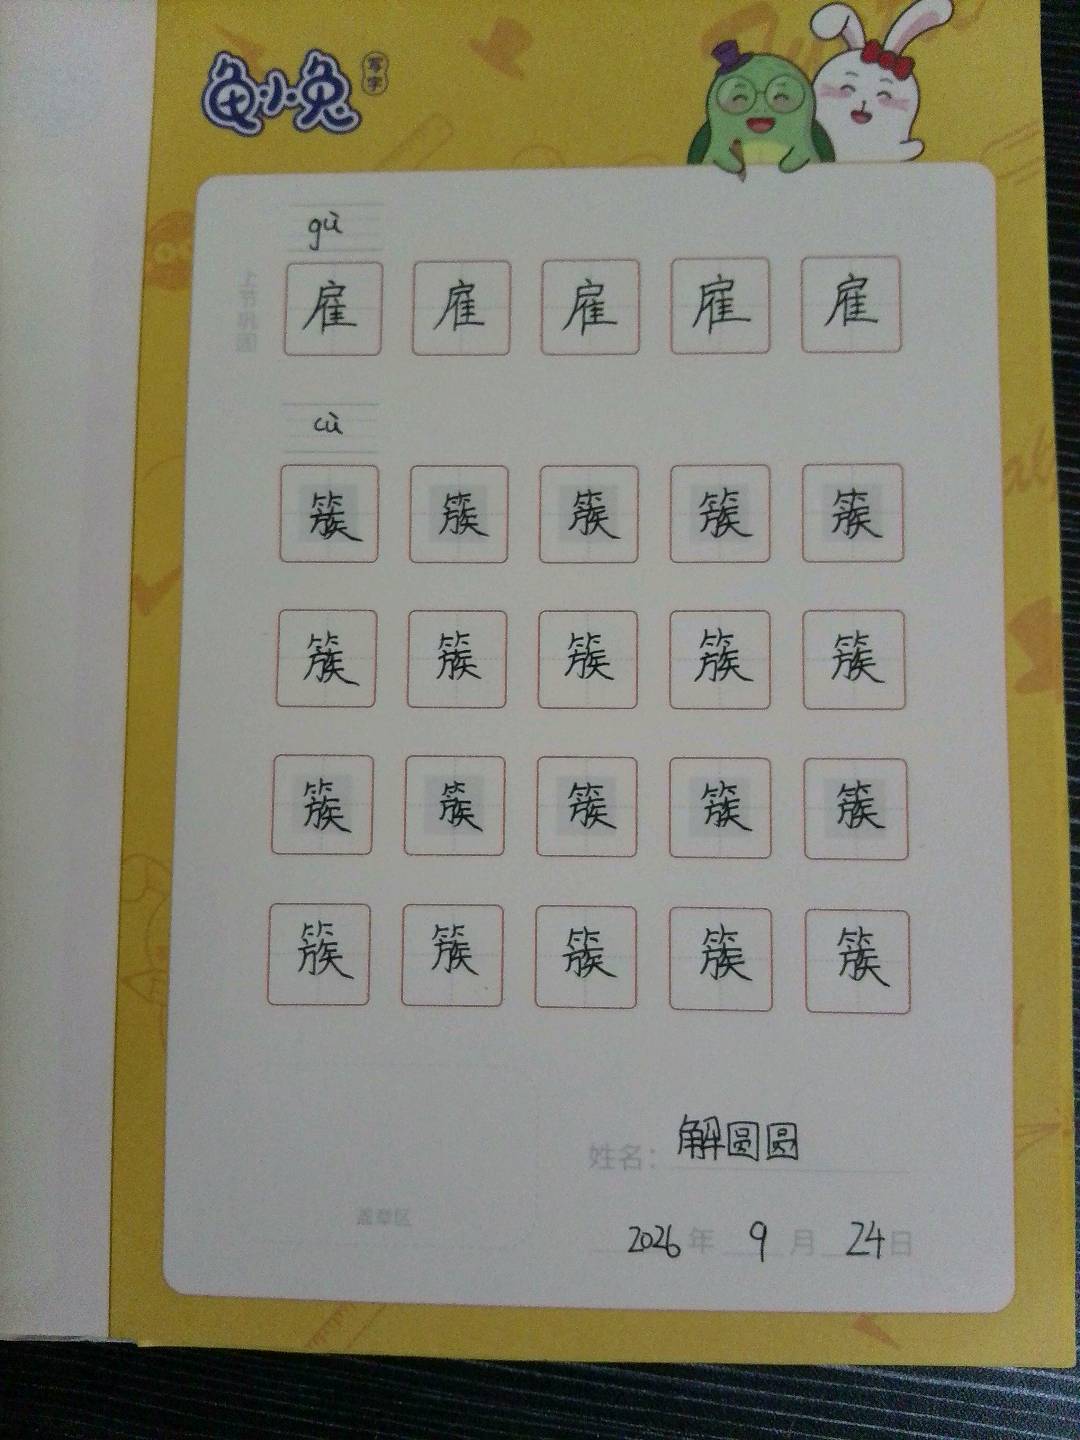 龟小兔
写字
gù
上节巩固
雇 雇 雇 雇 雇
cù
簇 簇 簇 簇 簇
簇 簇 簇 簇 簇
簇 簇 簇 簇 簇
簇 簇 簇 簇 簇
姓名：解圆圆
盖章区
2026年9月24日